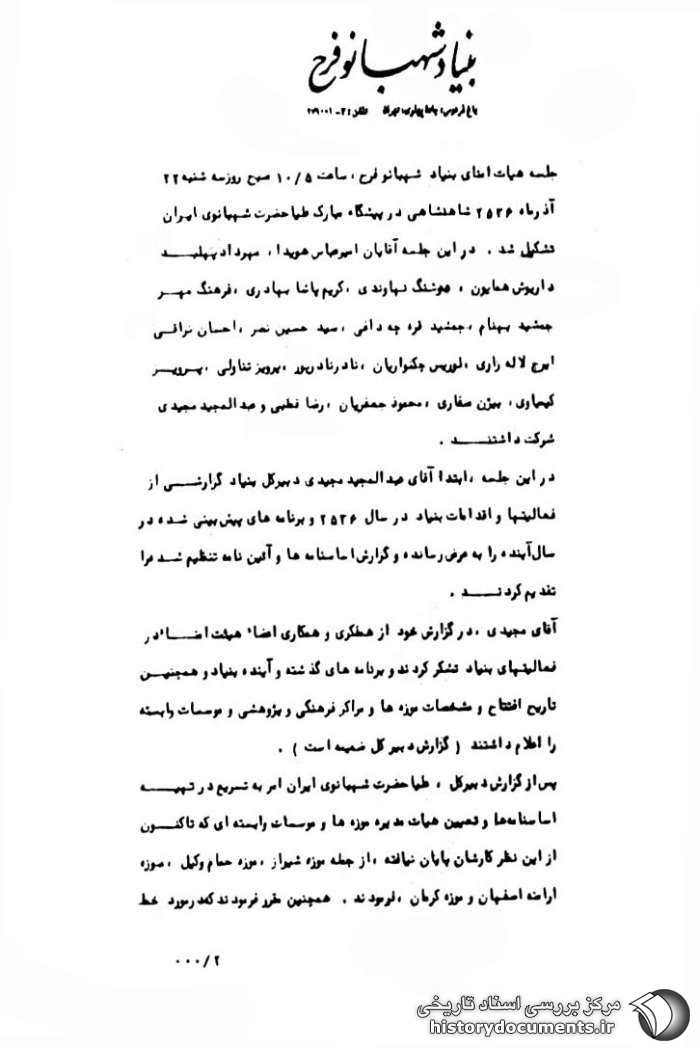 بنیاد شهبانو فرح
باغ فردوس، پهلوی، تهران تلفن: ۳-۲۷۹۰۰۱
جلسه هیات امنای بنیاد شهبانو فرح ، ساعت ۱۰/۵ صبح روز سه شنبه ۲۲
آذر ماه ۲۵۳۶ شاهنشاهی در پیشگاه مبارک علیا حضرت شهبانوی ایران
تشکیل شد . در این جلسه آقایان امیرعباس هویدا ، مهرداد پهلبد
داریوش همایون ، هوشنگ نهاوندی ، کریم پاشا بهادری ، فرهنگ مهر
جمشید بهنام ، جمشید قره چه داغی ، سید حسین نصر ، احسان نراقی
ایرج لاله زاری ، لوریس چکنواریان ، نادر نادرپور ، پرویز تناولی ، پرویز
کیمیاوی ، بیژن صفاری ، محمود جعفریان ، رضا قطبی و عبدالمجید مجیدی
شرکت داشتند .
در این جلسه ، ابتدا آقای عبدالمجید مجیدی دبیرکل بنیاد گزارشی از
فعالیتها و اقدامات بنیاد در سال ۲۵۳۶ و برنامه های پیش بینی شده در
سال آینده را به عرض رسانده و گزارش اساسنامه ها و آئین نامه تنظیم شده را
تقدیم کردند .
آقای مجیدی ، در گزارش خود از همفکری و همکاری اعضاء هیئت امناء در
فعالیتهای بنیاد تشکر کردند و برنامه های گذشته و آینده بنیاد و همچنین
تاریخ افتتاح و مشخصات موزه ها و مراکز فرهنگی و پژوهشی و موسسات وابسته
را اعلام داشتند ( گزارش دبیر کل ضمیمه است ) .
پس از گزارش دبیرکل ، علیا حضرت شهبانوی ایران امر به تسریع در تهیه
اساسنامه‌ها و تعیین هیات مدیره موزه ها و موسسات وابسته ای که تاکنون
از این نظر کارشان پایان نیافته ، از جمله موزه شیراز ، موزه حمام وکیل ، موزه
ارامنه اصفهان و موزه کرمان ، فرمودند . همچنین مقرر فرمودند که در مورد خط
۰۰۰/۲
مرکز بررسی اسناد تاریخی
historydocuments.ir